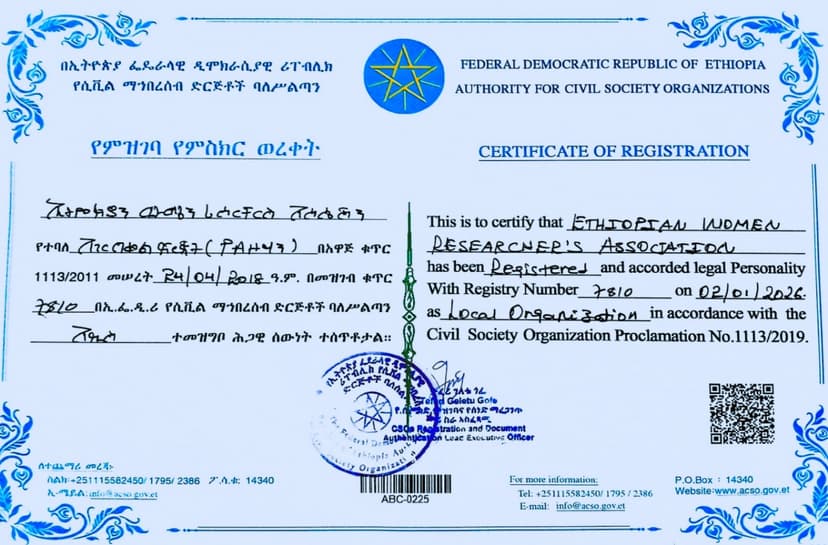 በኢትዮጵያ ፌዴራላዊ ዲሞክራሲያዊ ሪፐብሊክ
የሲቪል ማኅበረሰብ ድርጅቶች ባለሥልጣን
የምዝገባ የምስክር ወረቀት
የተባለ በአዋጅ ቁጥር
1113/2011 መሠረት 24/04/2018 ዓ.ም. በመዝገብ ቁጥር
7810 በኢ.ፌ.ዲ.ሪ የሲቪል ማኅበረሰብ ድርጅቶች ባለሥልጣን
ተመዝግቦ ሕጋዊ ሰውነት ተሰጥቶታል።
FEDERAL DEMOCRATIC REPUBLIC OF ETHIOPIA
AUTHORITY FOR CIVIL SOCIETY ORGANIZATIONS
CERTIFICATE OF REGISTRATION
This is to certify that ETHIOPIAN WOMEN
RESEARCHER'S ASSOCIATION
has been Registered and accorded legal Personality
With Registry Number 7810 on 02/01/2026.
as Local Organization in accordance with the
Civil Society Organization Proclamation No.1113/2019.
Geletu Gofe
CSOs Registration and Document
Authentication Lead Executive Officer
ለተጨማሪ መረጃ፡
ስልክ፡+251115582450/ 1795/ 2386 ፖ.ሳ.ቁ: 14340
ኢ-ሜይል:info@acso.gov.et
ABC-0225
For more information:
Tel: +251115582450/ 1795 / 2386
E-mail: info@acso.gov.et
P.O.Box : 14340
Website:www.acso.gov.et